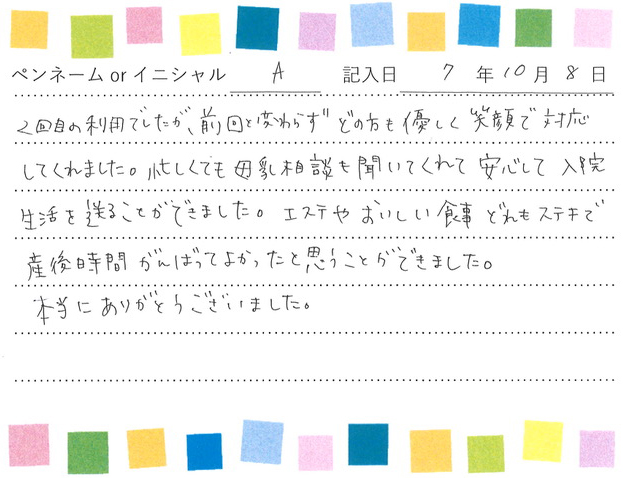 ペンネーム or イニシャル A 記入日 7 年 10 月 8 日
2回目の利用でしたが、前回と変わらず どの方も優しく 笑顔で 対応
してくれました。忙しくても 母乳相談も 聞いてくれて 安心して 入院
生活を 送ることができました。エステや おいしい 食事 どれも ステキで
産後時間 がんばってよかったと思うことができました。
本当に ありがとうございました。